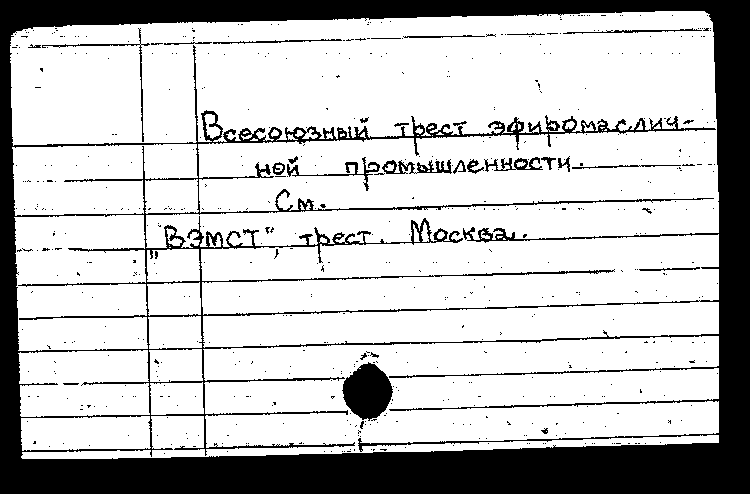 Всесоюзный трест эфиромаслич-
ной промышленности.
См.
„ВЭМСТ", трест. Москва.